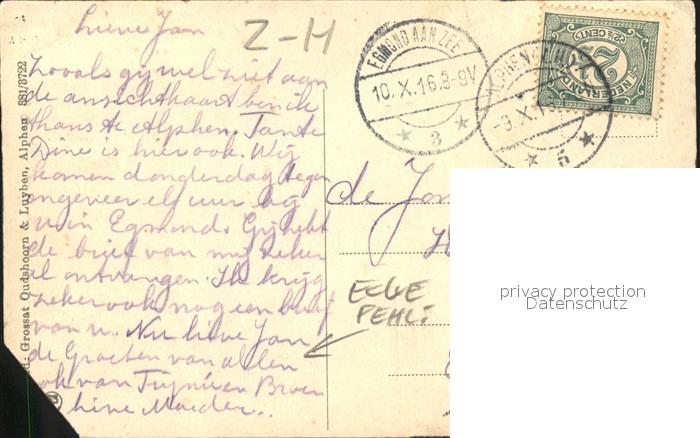 Lieve Jan
Z-H
zooals gij wel ziet aan
de ansichtkaart ben ik
thans te Alphen. Tante
Dine is hier ook. Wij
komen donderdag tegen
ongeveer elf uur bij
u in Egmond. Gij hebt
de brief van mij zeker
al ontvangen. Ik krijg
zeker ook nog een brief
van u. Nu lieve Jan
de Groeten van allen
ook van Truus en Broer
Moeder..
EGMOND AAN ZEE
10.X.16.8-9V
3
-9.X.1
5
2½
(2½ CENT)
NEDERLAND
de Jon
ECKE
FEHLT
privacy protection
Datenschutz
Grossat Oudshoorn & Luyben, Alphen 881/3722